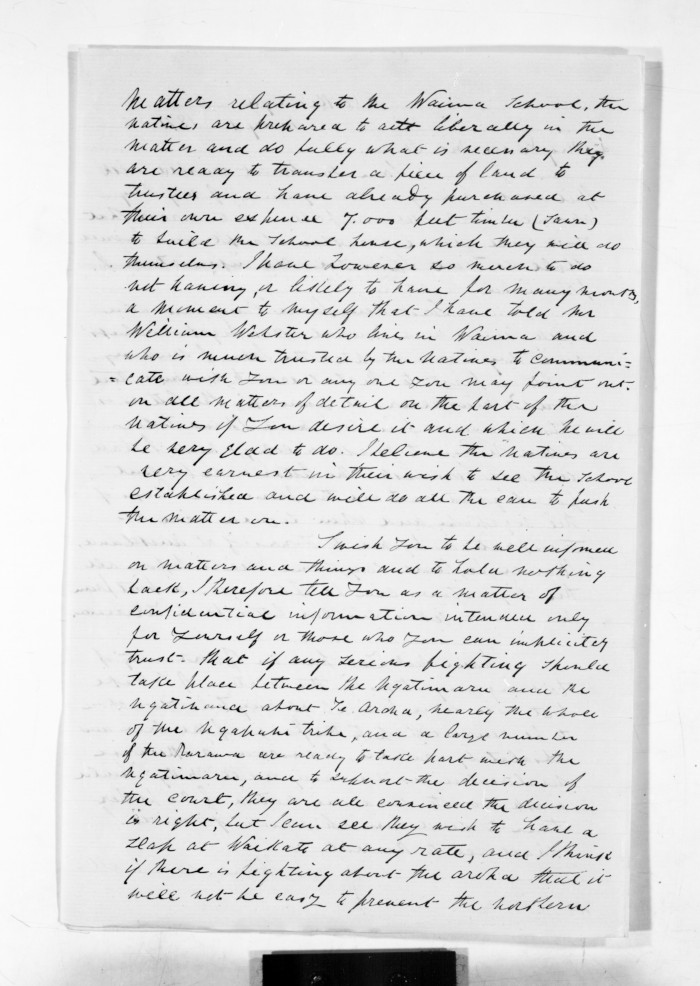 matters relating to the Waima School, the
natives are prepared to act liberally in the
matter and do fully what is necessary they
are ready to transfer a piece of land to
trustees and have already purchased at
their own expense 7.000 feet timber (Sawn)
to build the School house, which they will do
themselves. I have however so much to do
not having, or likely to have for many months,
a moment to myself that I have told Mr
William Webster who lives in Waima and
who is much trusted by the Natives to communi=
=cate with You or any one You may point out.
on all matters of detail on the part of the
Natives if You desire it and which he will
be very glad to do. I believe the Natives are
very earnest in their wish to see the School
established and will do all the can to push
the matter on.
I wish You to be well informed
on matters and things and to hold nothing
back, I therefore tell You as a matter of
confidential information intended only
for Yourself or those who You can implicitly
trust- that if any serious fighting should
take place between the Ngatimaru and the
Ngatihaua about Te Aroha, nearly the whole
of the Ngapuhi tribe, and a large number
of the Rarawa are ready to take part with the
Ngatimaru, and to support the decision of
the court, they are all convinced the decision
is right, but I can see they wish to have a
slap at Waikato at any rate, and I think
if there is fighting about the aroha that it
will not be easy to prevent the northern